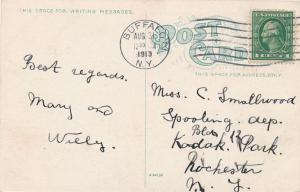 THIS SPACE FOR WRITING MESSAGES.
BUFFALO
AUG
1913
N.Y.
POST
CARD
THIS SPACE FOR ADDRESS ONLY.
Best regards.
Mary and
Willy.
Miss. C. Smallwood
Spooling. dep.
Bldg 12
Kodak Park.
Rochester
N. Y.